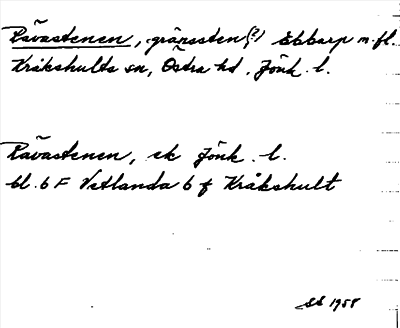 Rävastenen, gränssten(?) Ebbarp m.fl.
Kråkshults sn, Östra hd, Jönk. l.
Rävastenen, ek Jönk. l.
bl. 6 F Vetlanda 6 f Kråkshult
SS 1958